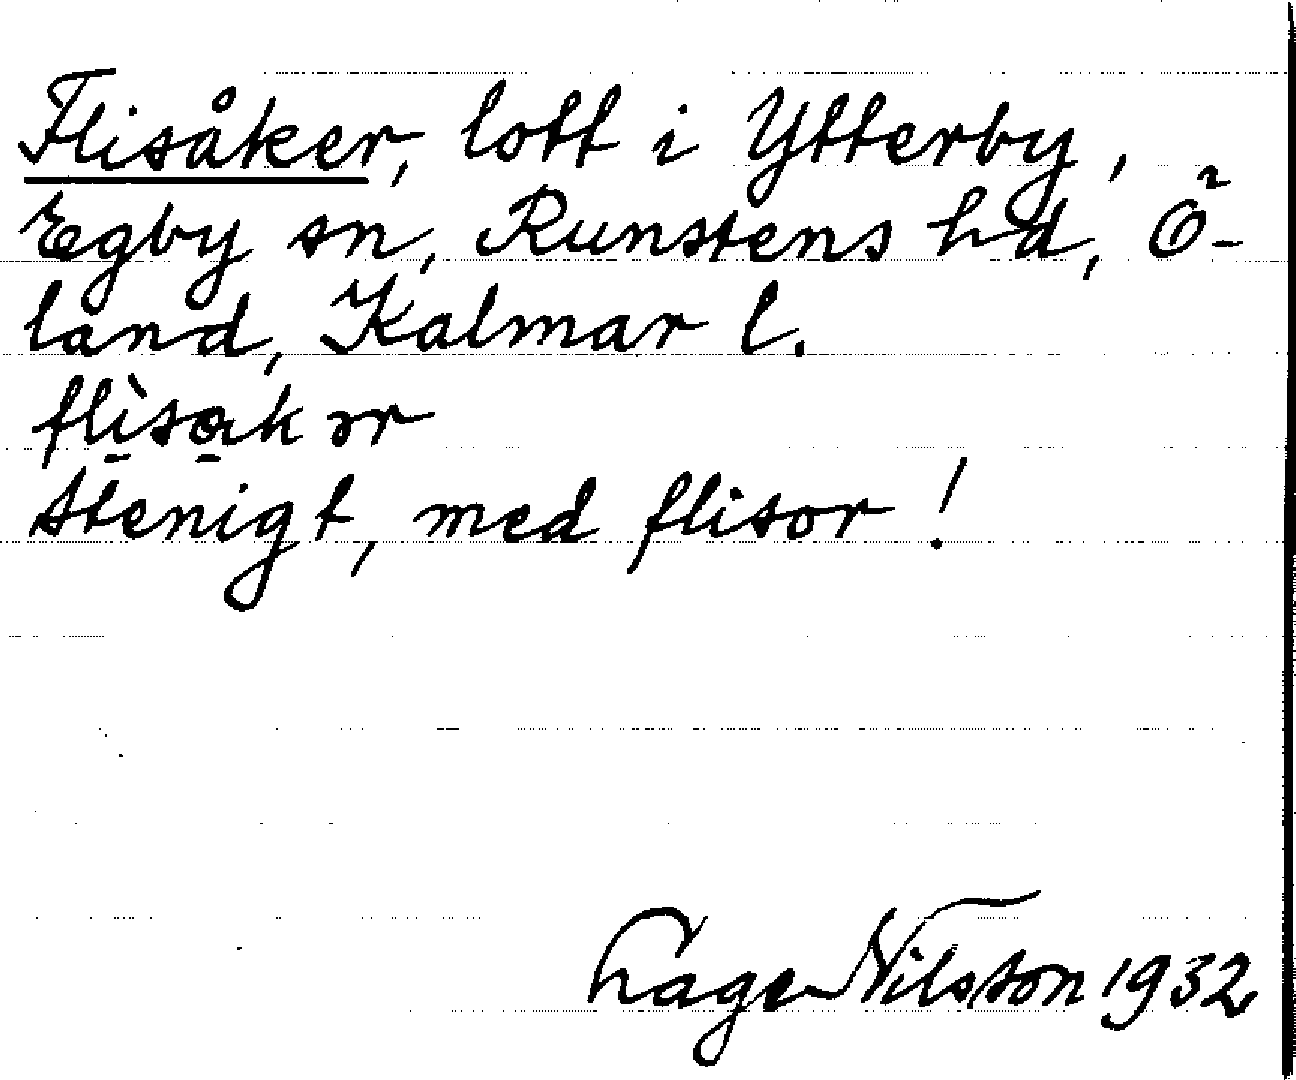 Flisåker, lott i Ytterby,
Egby sn, Runstens hd, Ö-
land, Kalmar l.
flı̱̀sa̱kər
Stenigt, med flisor!
Lage Nilsson 1932